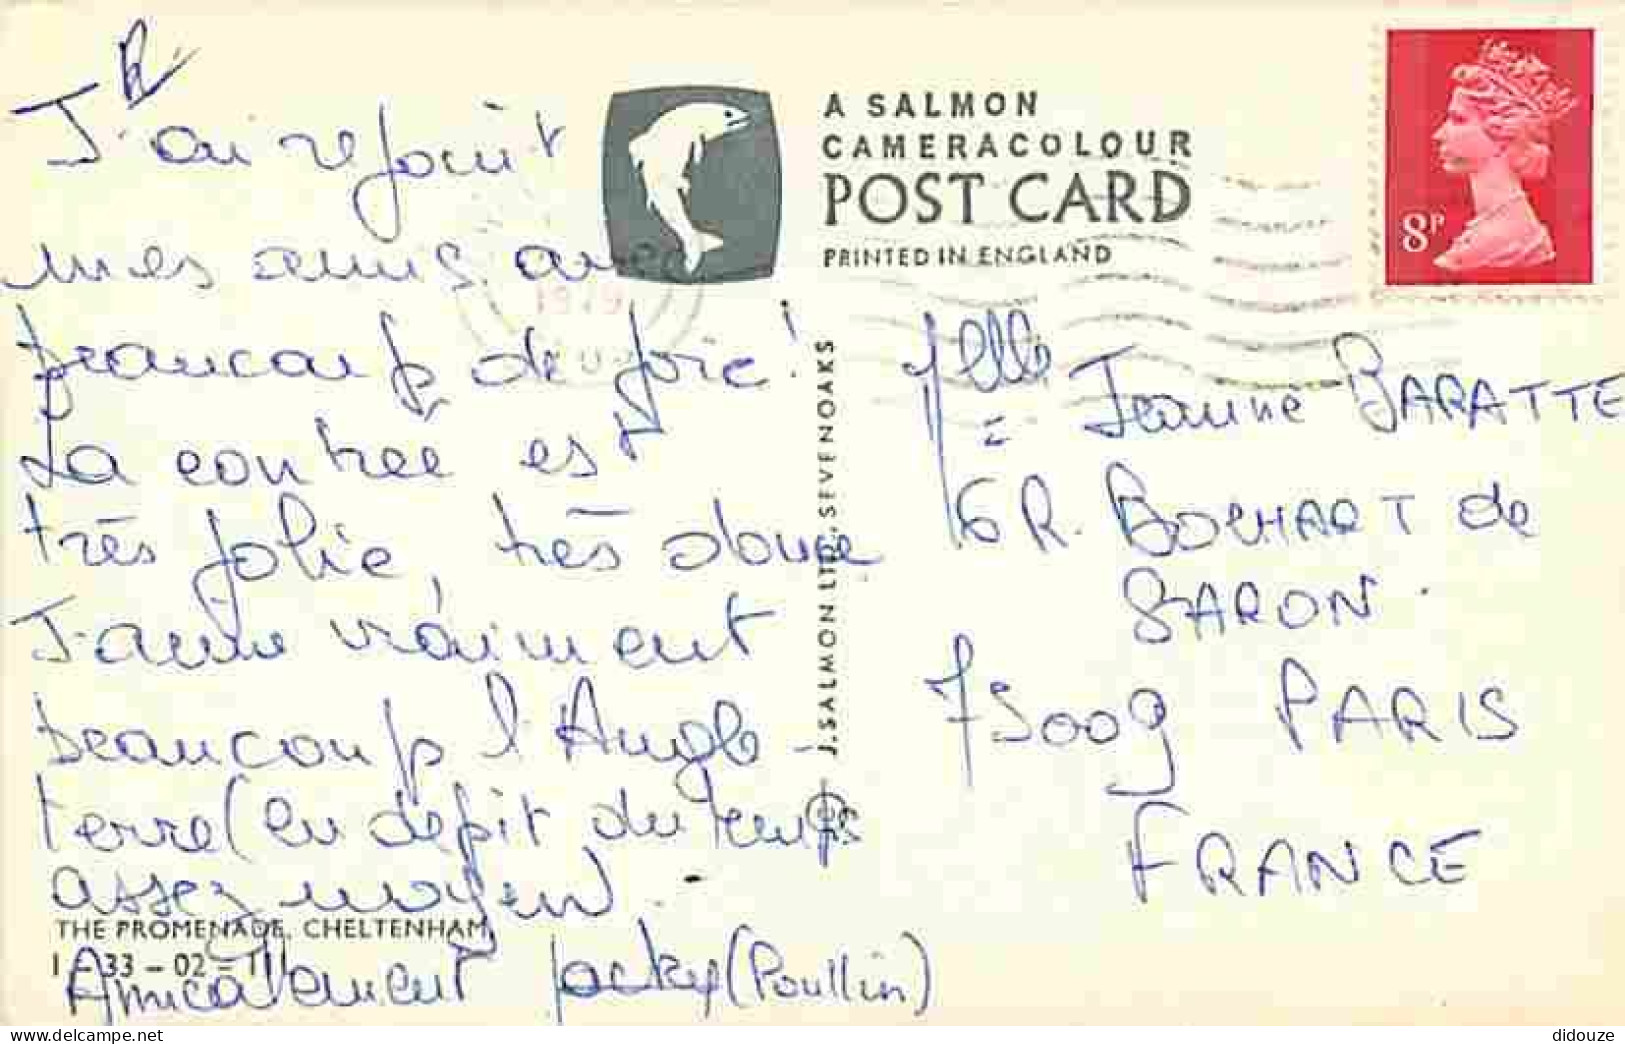 J'ai rejoint
mes amis avec
beaucoup de joie !
La contrée est
très jolie, très douce
J'aime vraiment
beaucoup l'Angle-
terre (en dépit du temps
assez moyen) .
Amicalement Jacky (Poullin)
THE PROMENADE, CHELTENHAM
1 - 33 - 02 - 11
A SALMON
CAMERACOLOUR
POST CARD
PRINTED IN ENGLAND
1979
J. SALMON LTD., SEVENOAKS
8P
Melle Jeanne BARATTE
6 R. BOCHART de
SARON.
75009 PARIS
FRANCE
didouze